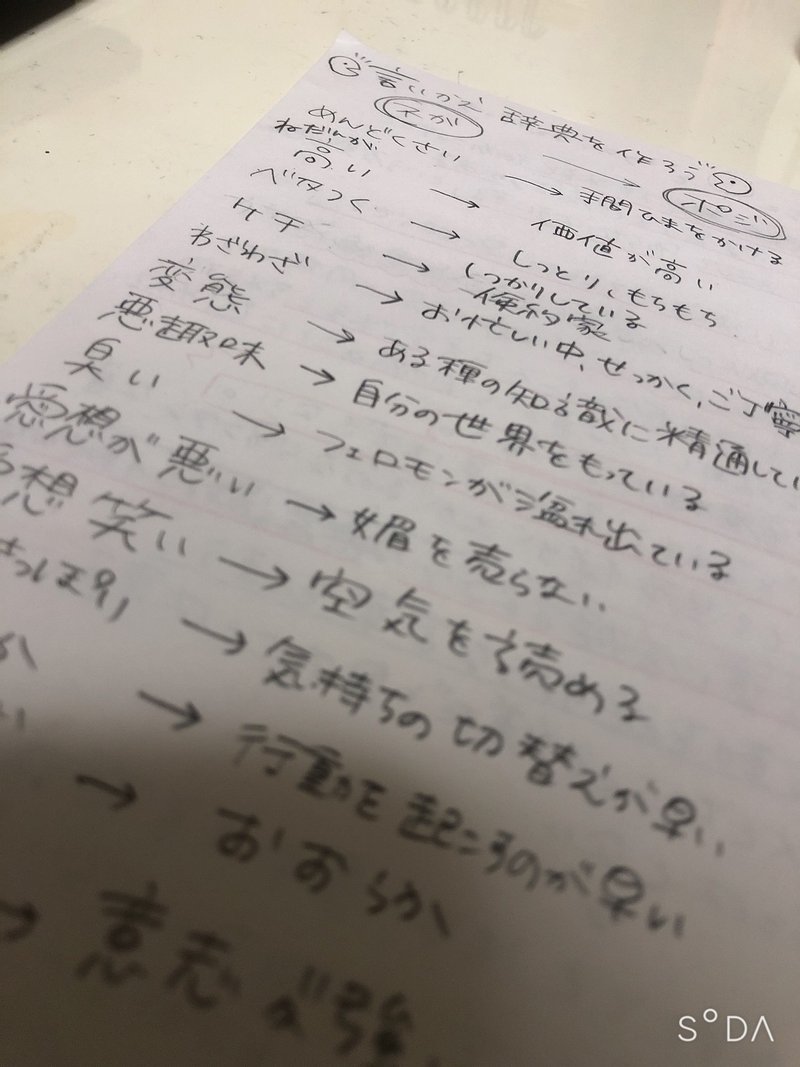 言いかえ 辞典を作ろう
ネガ → ポジ
めんどくさい → 手間ひまをかける
ねだんが高い → 価値が高い
ベタつく → しっとり、もちもち
ケチ → しっかりしている 倹約家
わざわざ → お忙しい中、せっかく、ご丁寧
変態 → ある種の知識に精通してい
悪趣味 → 自分の世界をもっている
臭い → フェロモンが溢れ出ている
愛想が悪い → 媚を売らない
愛想笑い → 空気を読める
きっぽり → 気持ちの切替えが早い
か → 行動を起こすのが早い
い → おおらか
→ 意志が強
SODA